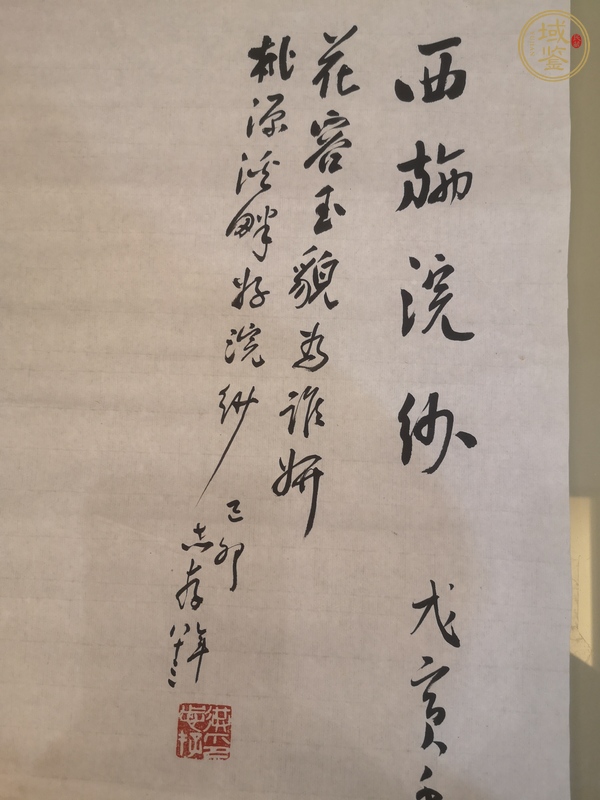 西施浣纱
戊寅
花容玉貌为谁妍
桃源溪畔好浣纱
己卯
志存
年八十二
域鉴